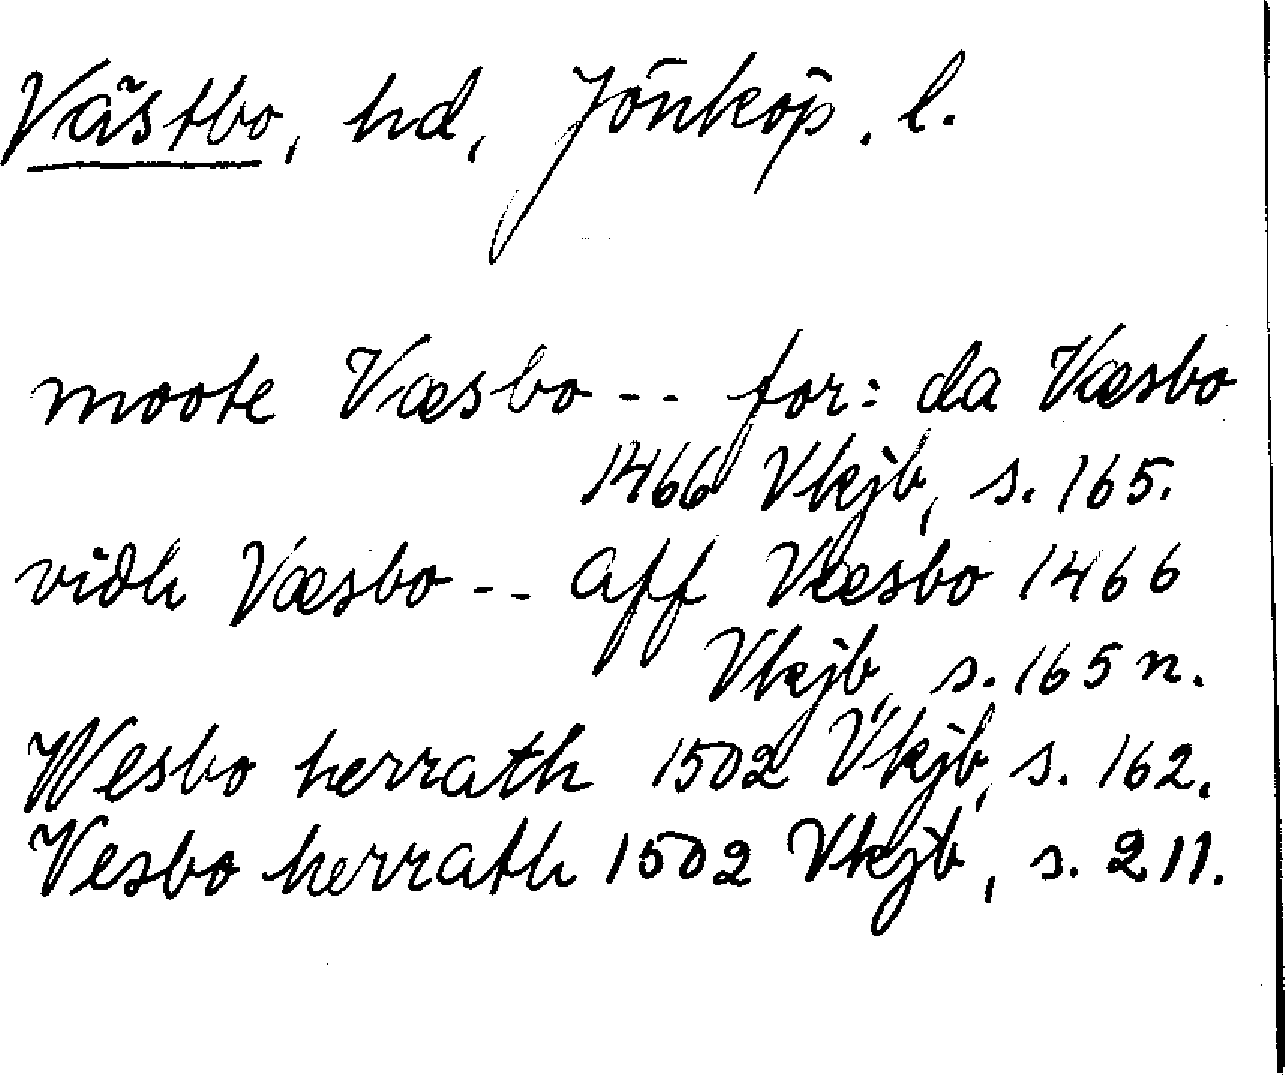 Västbo, hd, Jönköp. l.
moote Væsbo -- for: da Væsbo
1466 Vkjb, s. 165.
vidh Væsbo -- aff Væsbo 1466
Vkjb, s. 165 n.
Wesbo herrath 1502 Vkjb, s. 162.
Vesbo herrath 1502 Vkjb, s. 211.